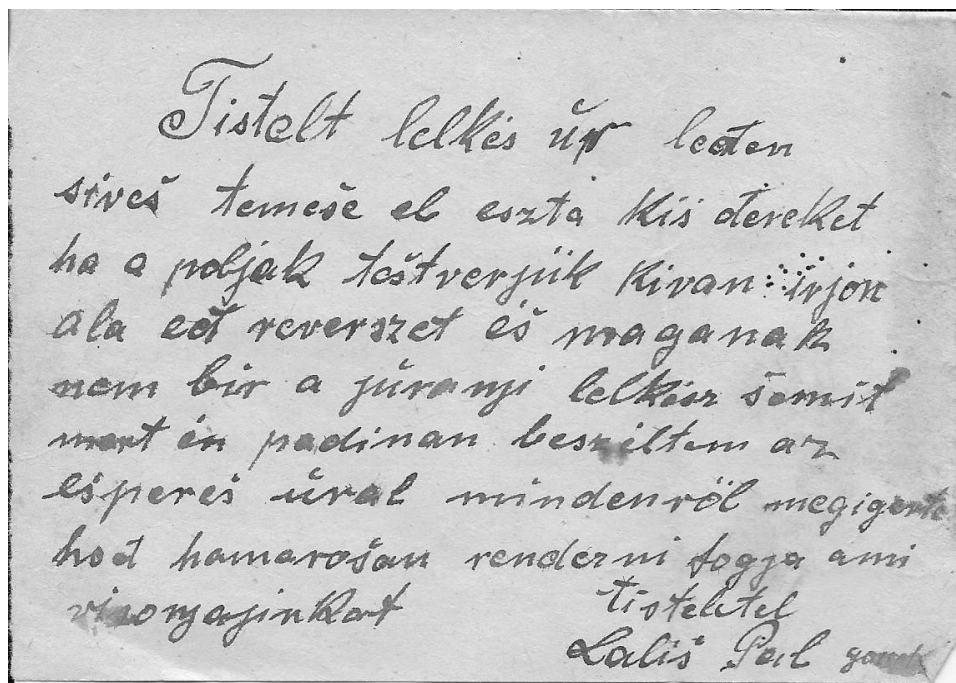 Tistelt lelkés úr leđen
siveš temeše el eszta kiš đereket
ha a poljak teštverjük kivan irjon
ala eđ reverszet és maganak
nem bir a júranji lelkész šemit
mert én padinan beszéltem az
ešpereš úral mindenröl megigerte
hođ hamarošan renderni fogja ami
vizonjajinkat
tisteletel
Lališ Pal